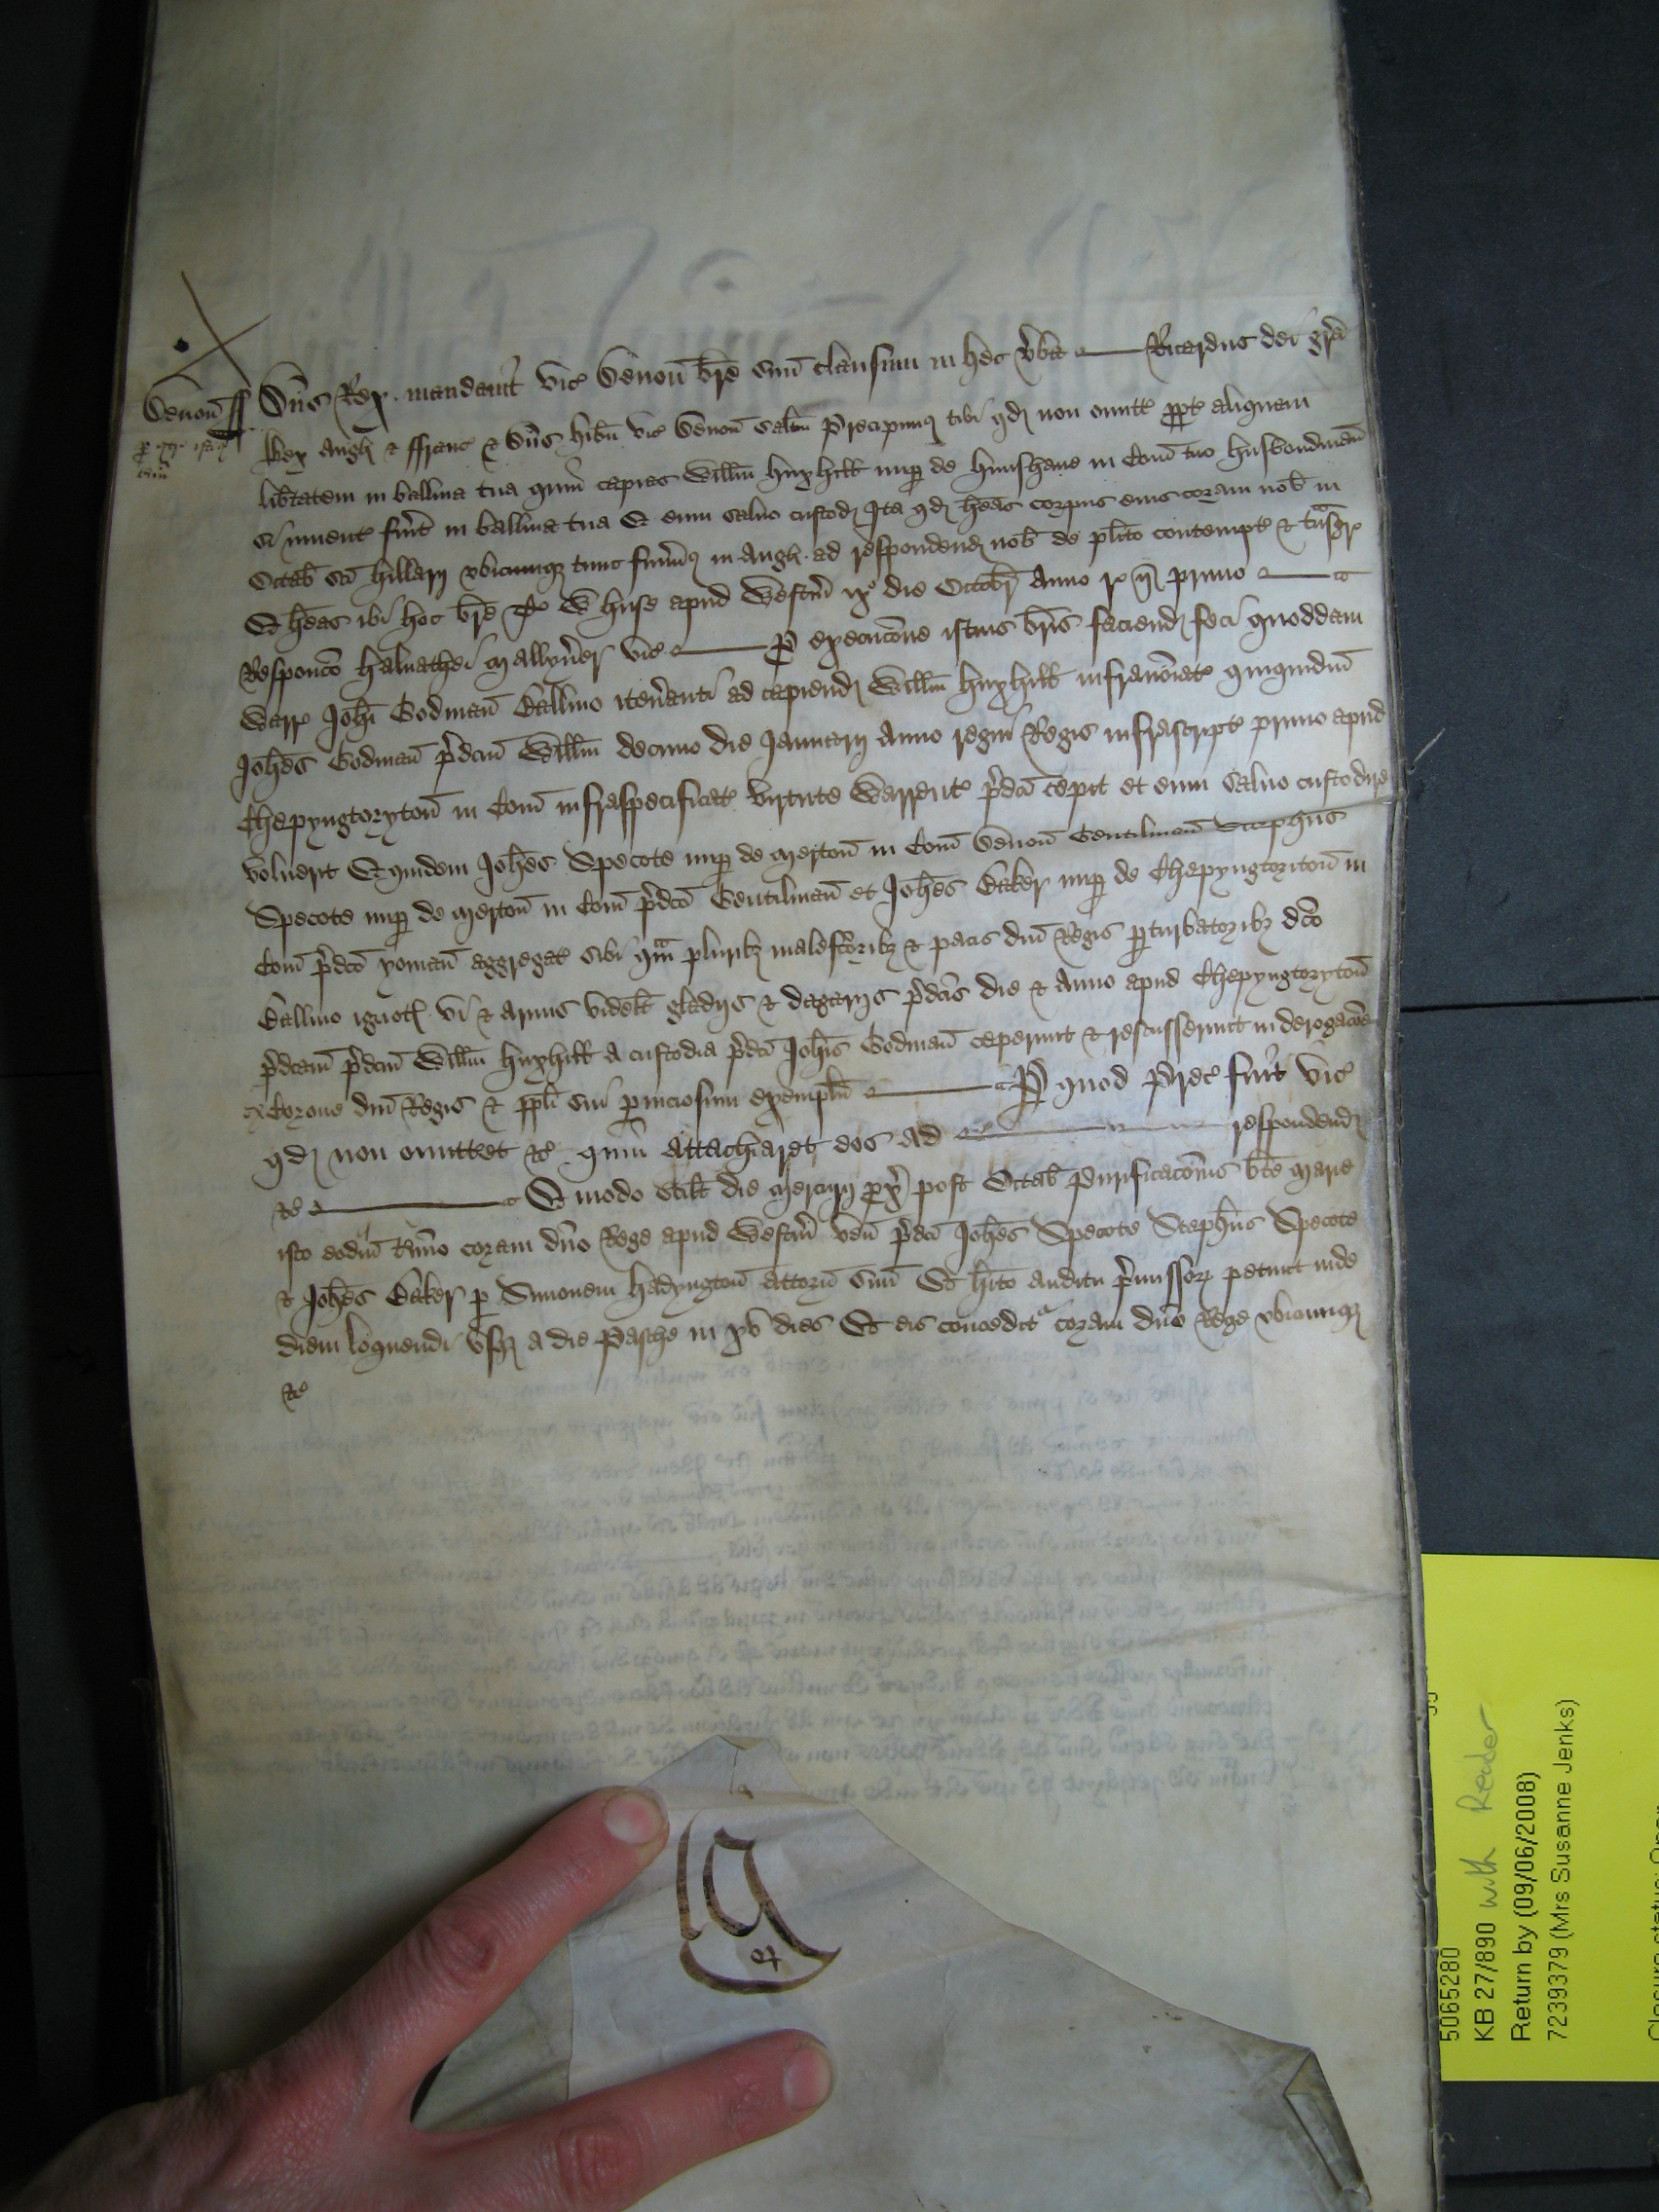 Devoñ ss Dñs Rex mandavit vic Devoñ bre suũ clausum in hec v̉ba Ricardus dei gr̃a
Rex Angl & ffranc & Dñs hib̃n vic Devoñ saltm̃ Precipimus tibi qd non omitt propt aliquam
lib̃tatem in balliva tua quin̉ capias Will̃m huxhill nup de in Com̃ tuo husbondmañ
si invent fủit in balliva tua Et eum salvo custod Ita qd heãs corpus eius coram nob̃ in
Octab̃ sc̃i hillarij ubicumq tunc fủim̉us in Angl ad respondend nob̃ de pl̃ito contempt & trãsgr
Et heãs ibi hoc br̃e T W huse apud Westm̃ ix° die Octobr̃ Anno r ñ primo
Responc̃o halnathei Mallyv̉er vic P execuc̃one istius br̃is faciend feci quoddam
Warr Joh̃i Godmañ Ballivo itin̉anti ad capiend Will̃m huxhill infranõiat quiquidm̃
Joh̃es Godmañ p̉dcũm Will̃m decimo die Januarij Anno regni Regis infrascript primo apud
Chepyngtorytoñ in Com̃ infraspecificat virtute Warrent p̉dc̃i cepit et eum salvo custodire
voluerit Et quidem Joh̃es Specote nup de Mertoñ in Com̃ Devoñ Gentilmañ Stephus
Specote nup de Mertoñ in Com̃ p̉dc̃o Gentilmañ et Joh̃es Baker nup de Chepyngtoritoñ in
Com̃ p̉dc̃o yomañ aggregat sibi qm̃ pluribz malefc̃oribz & pacis dñi Regis pturbatoribz dc̃o
Ballivo ignot vi & armis videlt gladijs & dagarijs p̉dc̃is die & Anno apud Chepyngtorytoñ
p̉dcãm p̉dcũm Will̃m huxhill a custodia p̉dc̃i Joh̃is Godmañ ceperunt & rescusserunt in derogac̃oem
Corone dñi Regis & ppl̃i sui pniciosum exemplũ P quod Prec fủit vic
qd non omittet &c quin̉ attachiaret eos ad respondend
&c Et modo scil̃t die Mercurij px̉ post Octab̃ Purificac̃onis bt̃e Marie
isto eodm̃ t̉mino coram dño Rege apud Westm̃ veñ p̉dc̃i Joh̃es Specote Steph̃us Specote
& Joh̃es Baker p Simonem hadyngtoñ attorñ suũ Et h̃ito auditu p̉missor petunt inde
diem loquendi usq a die Pasche in xv dies Et eis concedit coram dño Rege ubicumq
&c
5065280
KB 27/890 with Reader
Return by (09/06/2008)
7239379 (Mrs Susanne Jenks)